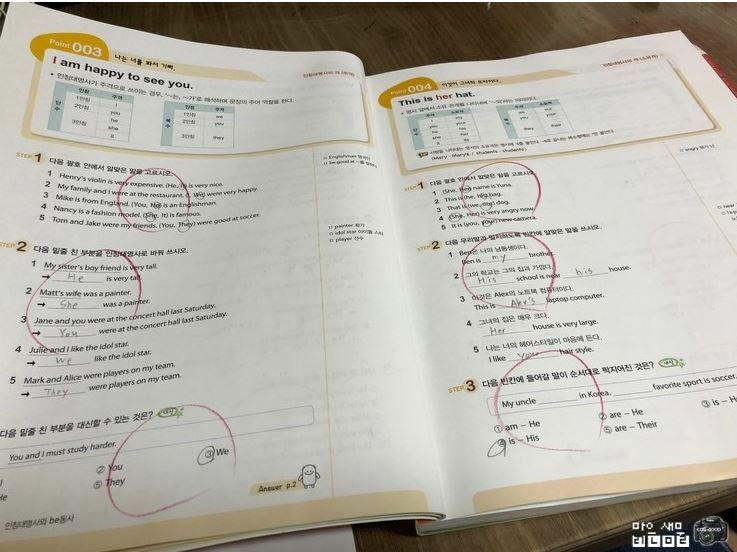 Point 003
나는 너를 봐서 기뻐.
인칭대명사의 격 (주격)
I am happy to see you.
• 인칭대명사가 주격으로 쓰이는 경우, '~는, ~가'로 해석하며 문장의 주어 역할을 한다.
단수
인칭 주격
1인칭 I
2인칭 you
3인칭 he
she
it
복수
인칭 주격
1인칭 we
2인칭 you
3인칭 they
STEP 1 다음 괄호 안에서 알맞은 말을 고르시오.
1 Henry's violin is very expensive. (He, It) is very nice.
2 My family and I were at the restaurant. (I, We) were very happy.
3 Mike is from England. (You, He) is an Englishman.
4 Nancy is a fashion model. (She, It) is famous.
5 Tom and Jake were my friends. (You, They) were good at soccer.
□ Englishman 영국인
□ be good at ~를 잘하다
STEP 2 다음 밑줄 친 부분을 인칭대명사로 바꿔 쓰시오.
1 My sister's boy friend is very tall.
→ He is very tall.
2 Matt's wife was a painter.
→ She was a painter.
3 Jane and you were at the concert hall last Saturday.
→ You were at the concert hall last Saturday.
4 Julie and I like the idol star.
→ We like the idol star.
5 Mark and Alice were players on my team.
→ They were players on my team.
□ painter 화가
□ idol star 아이돌 스타
□ player 선수
다음 밑줄 친 부분을 대신할 수 있는 것은?
You and I must study harder.
② You
③ We
He
⑤ They
Answer p.2
인칭대명사와 be동사
Point 004
인칭대명사의 격 (소유격)
This is her hat.
단수
주격 소유격
I my
you your
he his
she her
it its
복수
주격 소유격
we our
you your
they their
(Mary - Mary's / students - students')
STEP 1 다음 괄호 안에서 알맞은 말을 고르시오.
1 (She, Her) name is Yuna.
2 This is (he, his) bag.
3 That is (we, our) dog.
4 (She, Her) is very angry now.
5 It is (you, your) new camera.
□ angry 화가 난
STEP 2 다음 우리말과 일치하도록 빈칸에 알맞은 말을 쓰시오.
1 Ben은 나의 남동생이다.
Ben is my brother.
2 그의 학교는 그의 집과 가깝다.
His school is near his house.
3 이것은 Alex의 노트북 컴퓨터이다.
This is Alex's laptop computer.
4 그녀의 집은 매우 크다.
Her house is very large.
5 나는 너의 헤어스타일이 마음에 든다.
I like your hair style.
STEP 3 다음 빈칸에 들어갈 말이 순서대로 짝지어진 것은?
My uncle in Korea. favorite sport is soccer.
① am – He
② are – He
③ is – H
④ is – His
⑤ are – Their